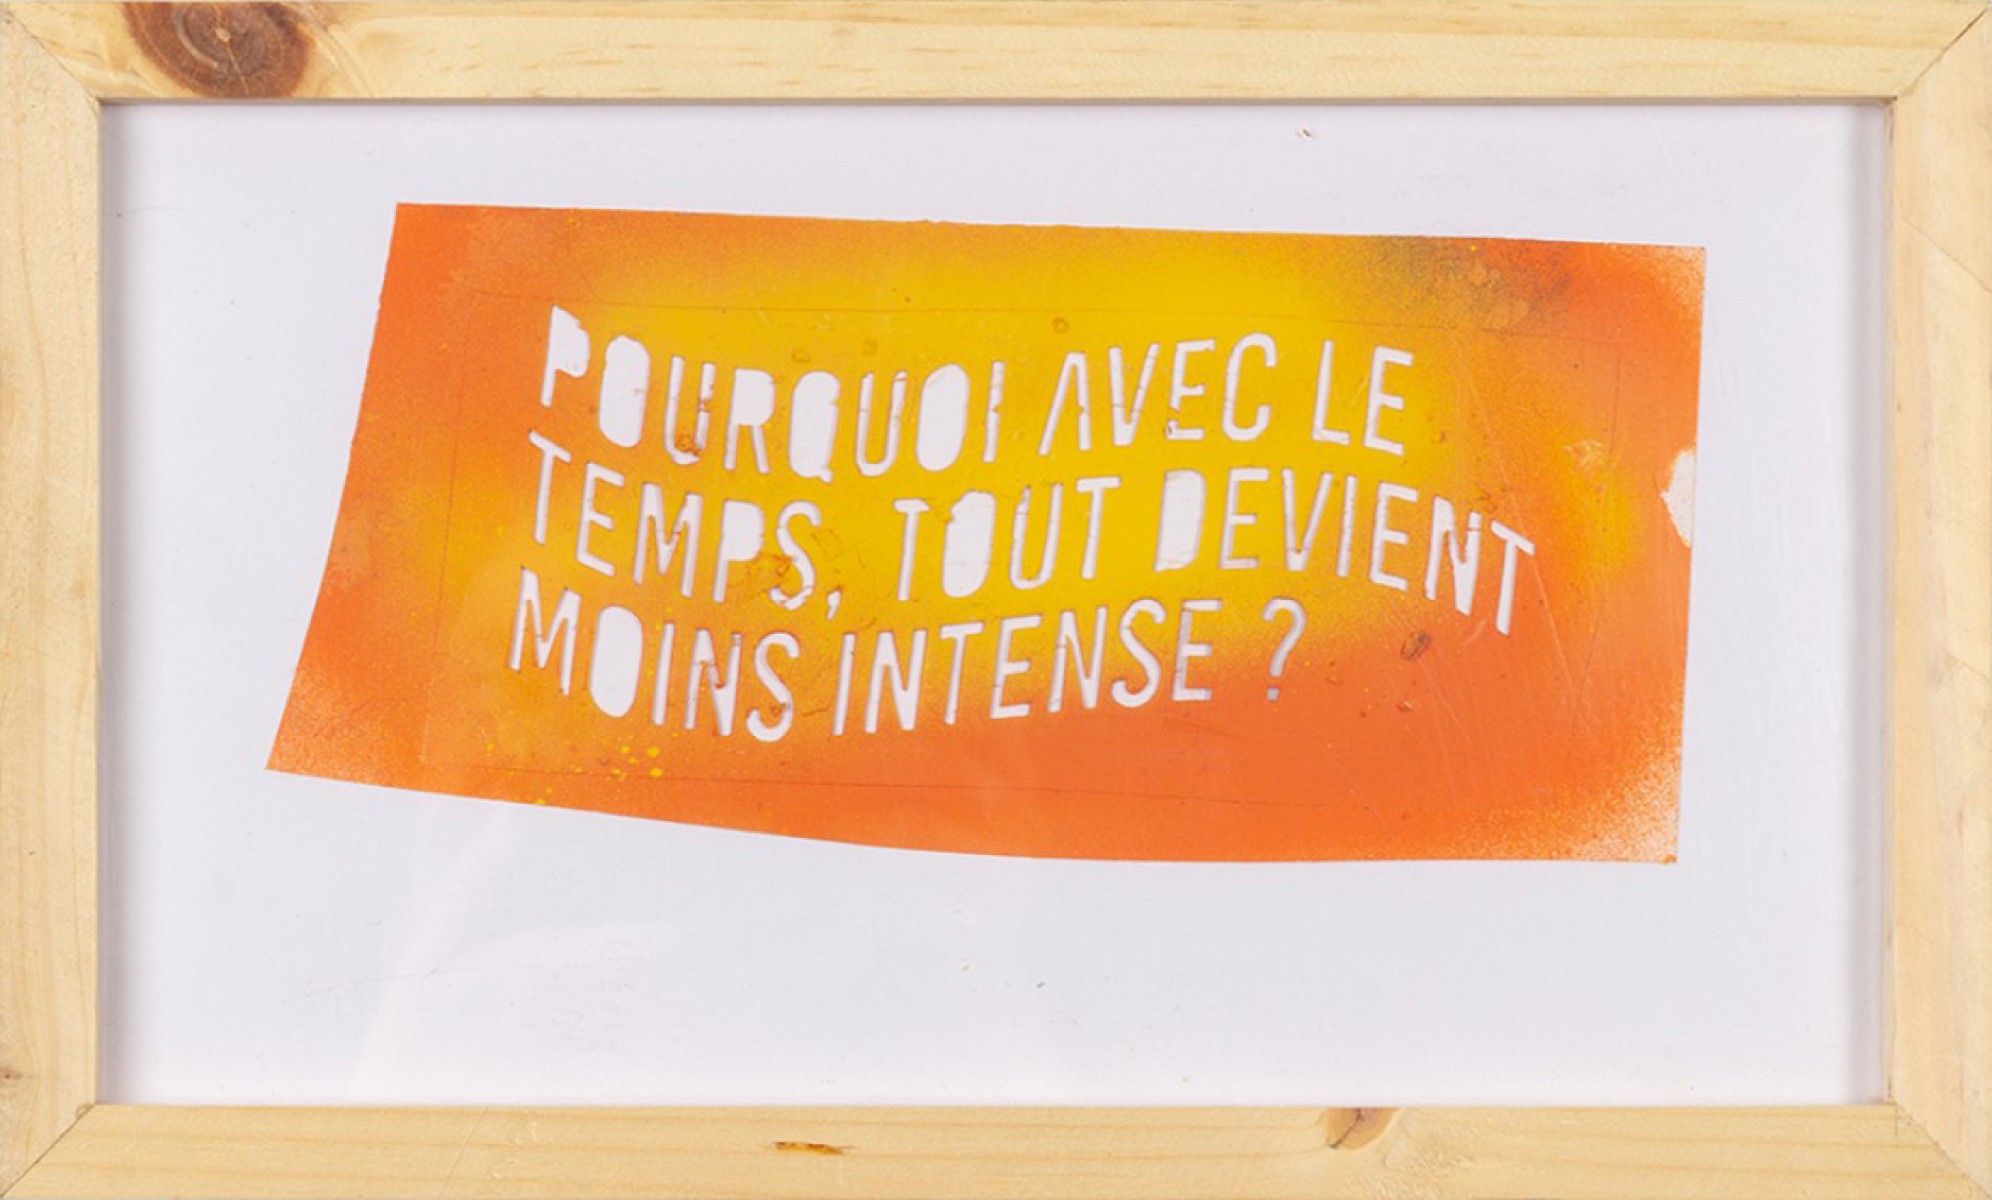 POURQUOI AVEC LE
TEMPS, TOUT DEVIENT
MOINS INTENSE ?